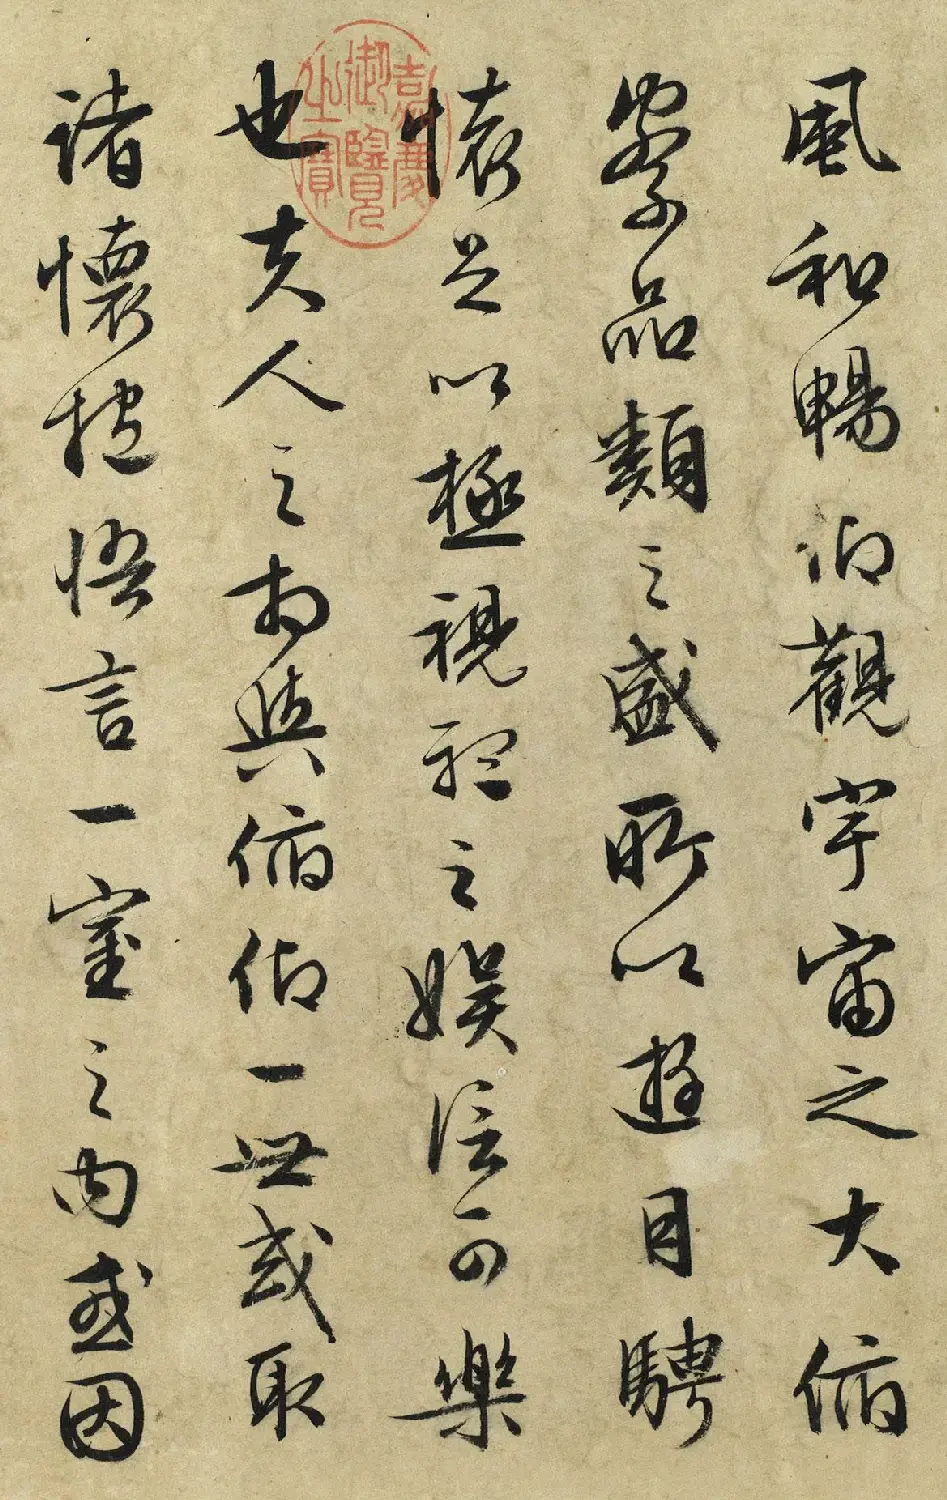 風和暢仰觀宇宙之大俯
察品類之盛所以遊目騁
懷足以極視聽之娱信可樂
也夫人之相與俯仰一世或取
諸懷抱悟言一室之内或因
嘉慶
御覽
之寶